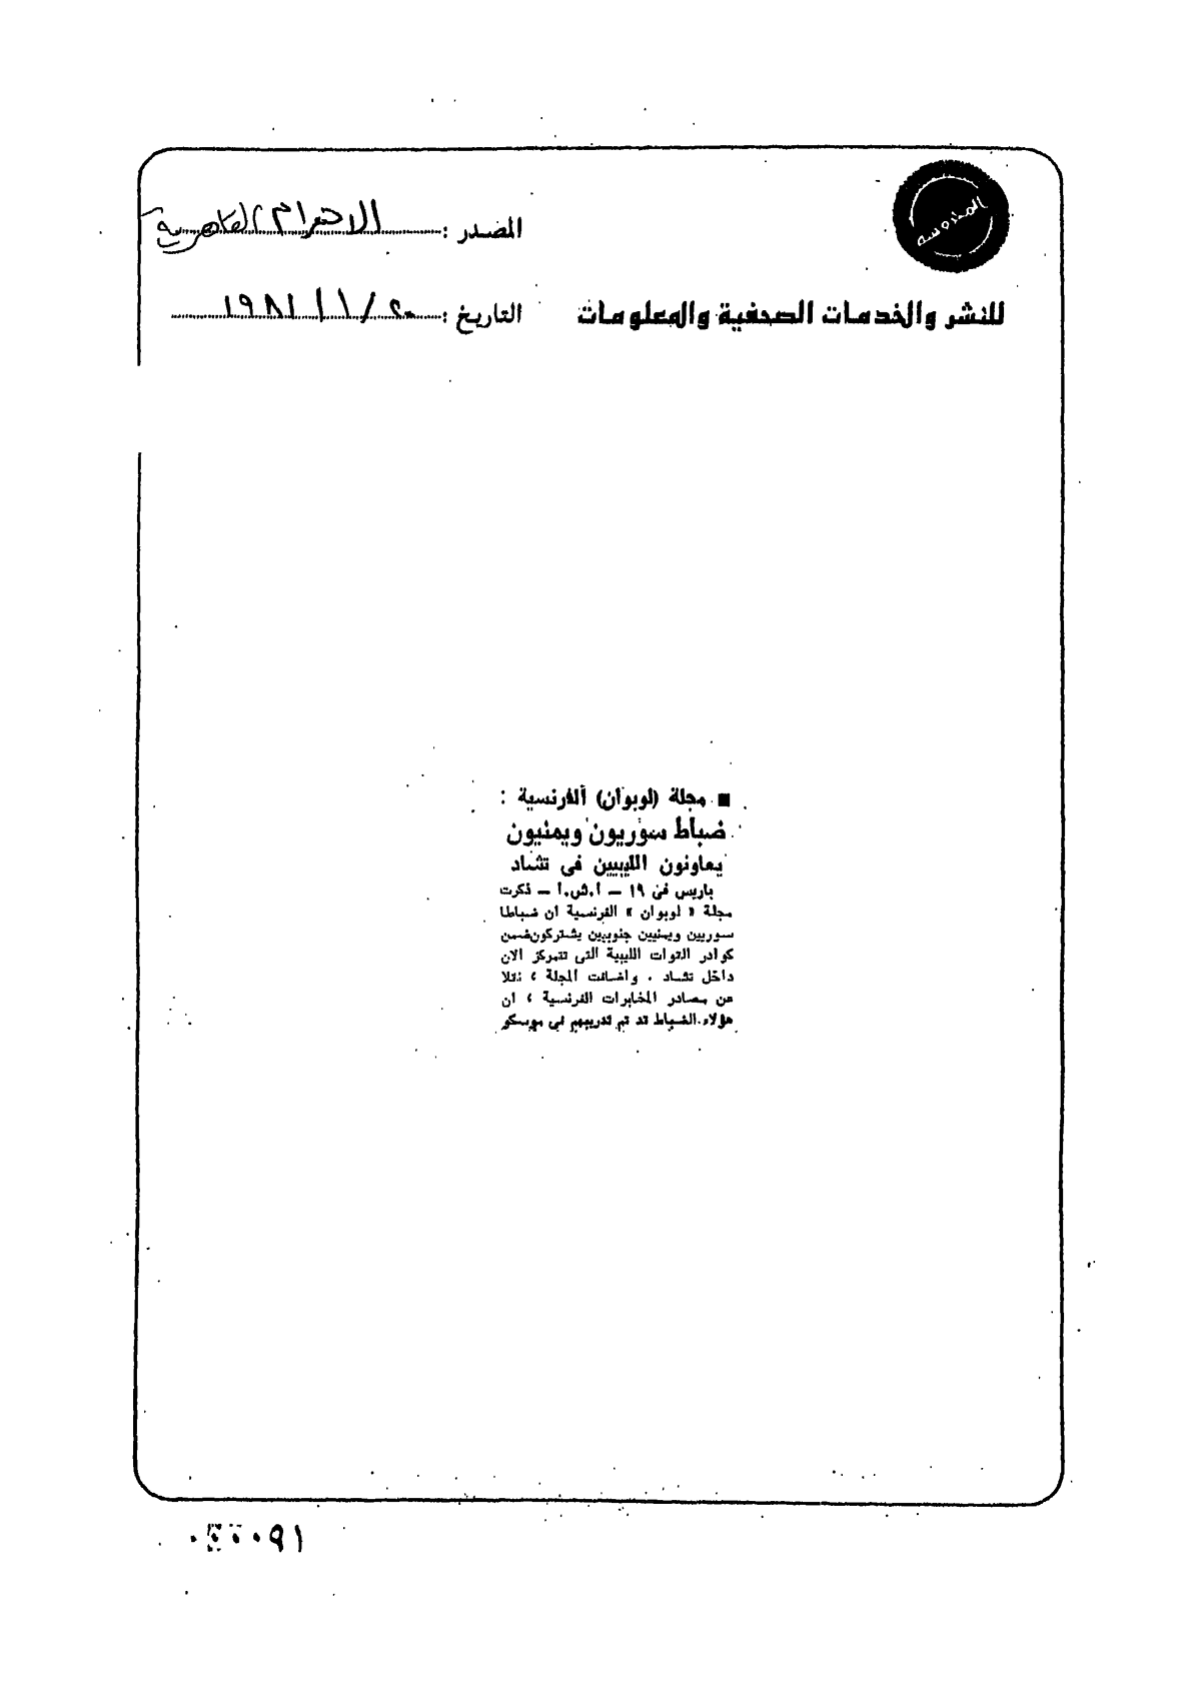 المحروسة
المصدر : الاهرام القاهرية
للنشر والخدمات الصحفية والمعلومات
التاريخ : ٢٠ / ١ / ١٩٨١
■ مجلة (لوبوان) الفرنسية :
ضباط سوريون ويمنيون
يعاونون الليبيين فى تشاد
باريس فى ١٩ – أ.ش.أ – ذكرت
مجلة « لوبوان » الفرنسية ان ضباطا
سوريين ويمنيين جنوبيين يشتركون ضمن
كوادر القوات الليبية التى تتمركز الان
داخل تشاد . واضافت المجلة ، نقلا
عن مصادر المخابرات الفرنسية ، ان
هؤلاء الضباط قد تم تدريبهم فى موسكو